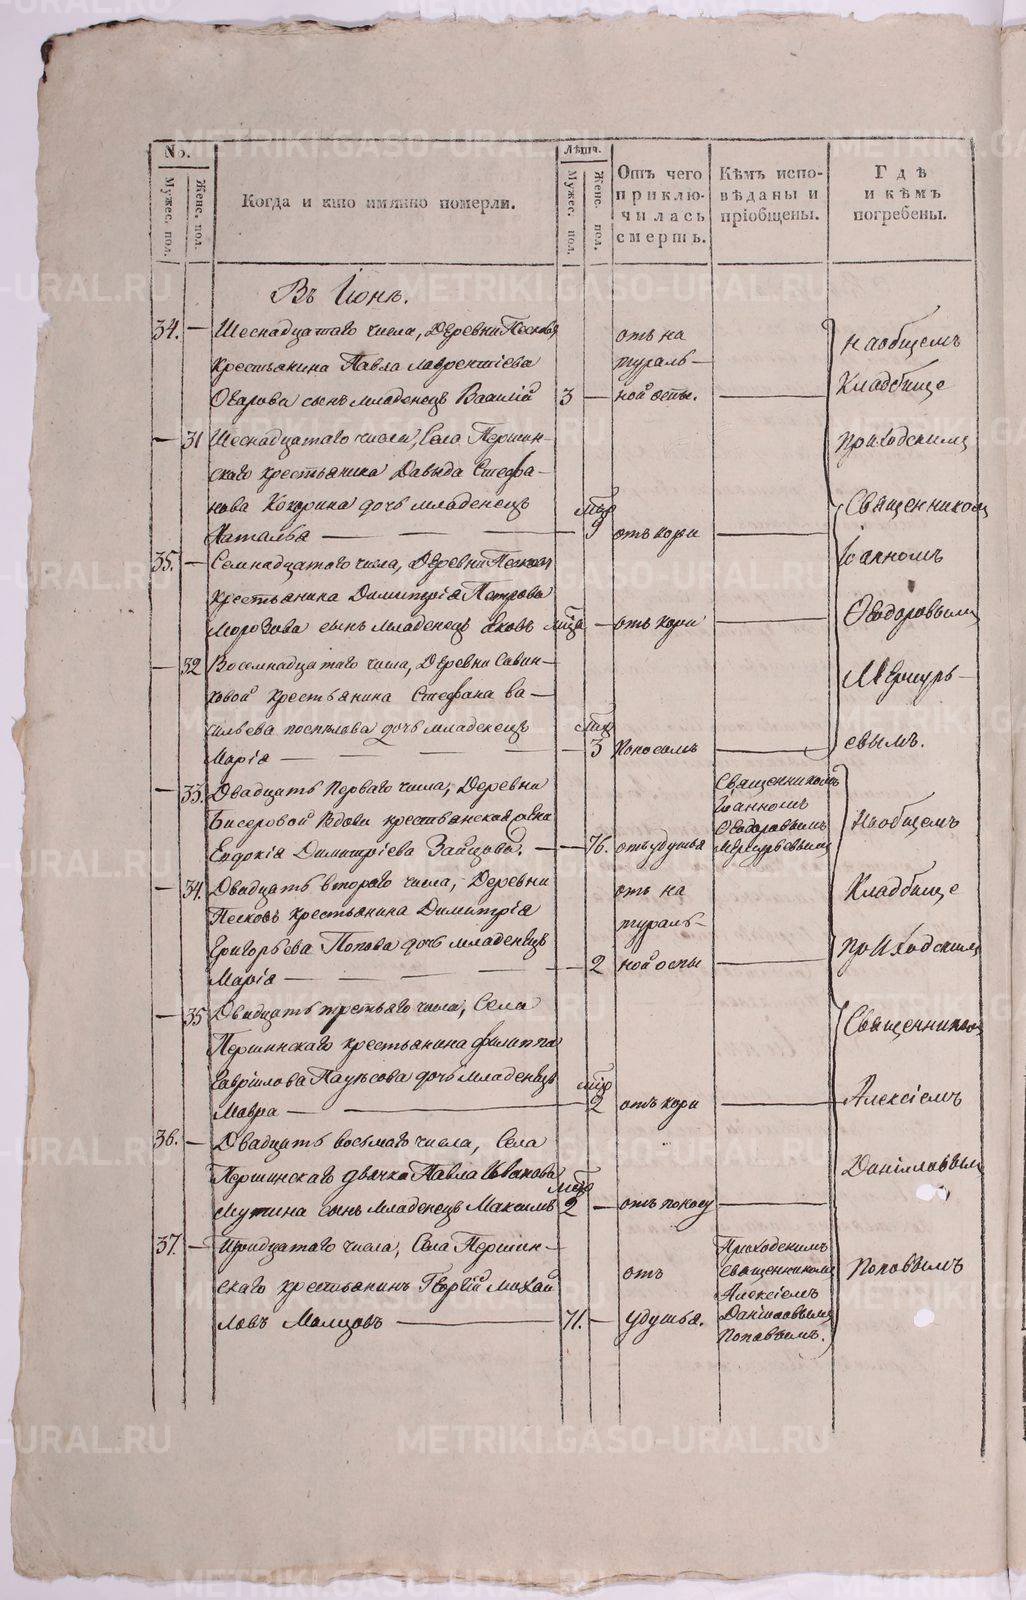 №.
Мужес. пол.
Женс. пол.
Когда и кто имянно померли.
Лѣта.
Мужес. пол.
Женс. пол.
Отъ чего приклю-чилась смерть.
Кѣмъ испо-вѣданы и пріобщены.
Гдѣ и кѣмъ погребены.
Въ Іюнѣ.
34. — Шеснадцатаго числа, Деревни Песковъ
крестьянина Павла Лаврентіева
Оварова сынъ младенецъ Василій 3 —
отъ на
тураль-
ной оспы.
— 31 Шеснадцатаго числа, Села Першин-
скаго крестьянина Давыда Стефа-
нова Кокорина дочь младенецъ
Наталья — 9 отъ кори
35. — Семнадцатаго числа, Деревни Песковъ
крестьянина Димитрія Петрова
Морозова сынъ младенецъ Яковъ — отъ кори
— 32 Восемнадцатаго числа, Деревни Савин-
ковой крестьянина Стефана Ва-
сильева поспѣлова дочь младенецъ
Марія — 3 поносомъ
— 33. Двадцать перваго числа, Деревни
Бисеровой вдова крестьянская жена
Евдокія Димитріева Зайцова. — 76. отъ удушья
Священникомъ
Іоанномъ
Ѳеодоровымъ
Меркурьевымъ
— 34. Двадцать втораго числа, Деревни
Песковъ крестьянина Димитрія
Григорьева Попова дочь младенецъ
Марія — 2
отъ на
тураль-
ной оспы
— 35 Двадцать третьяго числа, Села
Першинскаго крестьянина Филиппа
Гавріилова дочь младенецъ
Мавра — 2 отъ кори
36. — Двадцать восьмаго числа, Села
Першинскаго дьячка Павла Иванова
Мутина сынъ младенецъ Максимъ 2 — отъ поносу
37. — Тридцатаго числа, Села Першин-
скаго крестьянинъ Георгій Михай
ловъ Малцовъ — 71. —
отъ
удушья.
Приходскимъ
священникомъ
Алексіемъ
Даніиловымъ
Поповымъ.
На общемъ
Кладбище
приходскимъ
Священникомъ
Іоанномъ
Ѳеодоровымъ
Меркурь-
евымъ.
На общемъ
Кладбище
приходскимъ
Священникомъ
Алексіемъ
Даніиловымъ
Поповымъ
METRIKI.GASO-URAL.RU